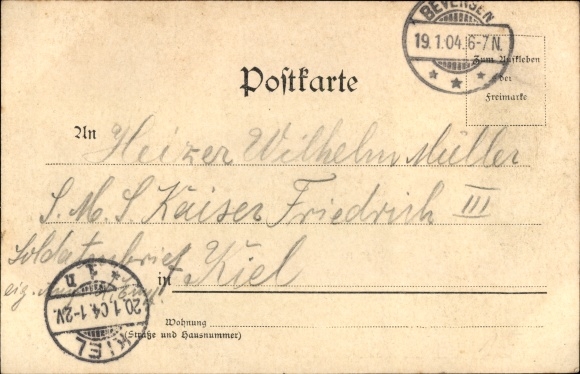 BEVENSEN
19.1.04.6-7N.
Postkarte
Zum Aufkleben
der
Freimarke
An Heizer Wilhelm Müller
S. M. S. Kaiser Friedrich III
Soldatenbrief
in Kiel
eig.
KIEL
20.1.04.1-2V.
Wohnung
(Straße und Hausnummer)